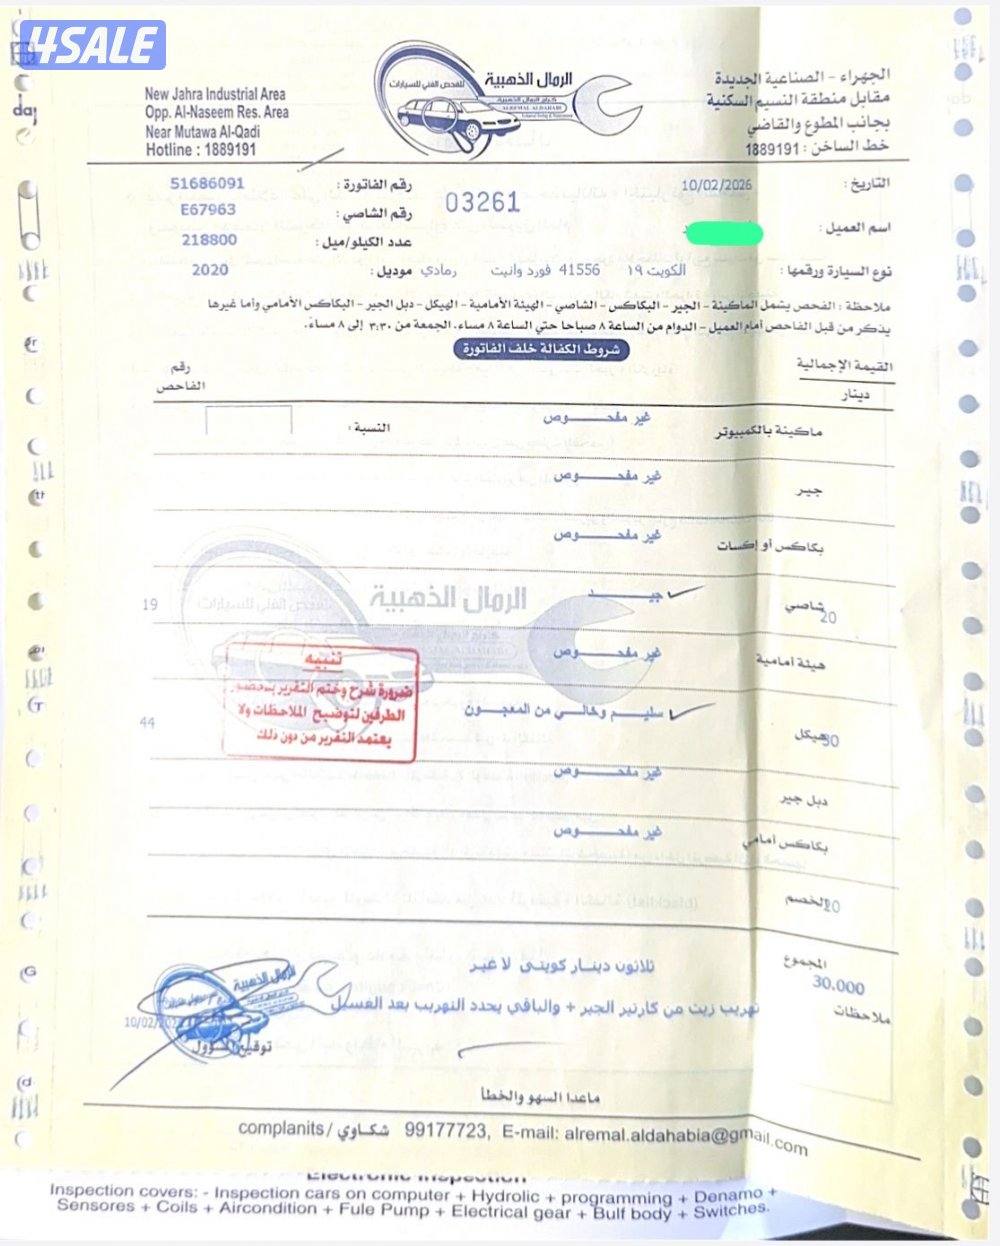 4SALE
day
New Jahra Industrial Area
Opp. Al-Naseem Res. Area
Near Mutawa Al-Qadi
Hotline : 1889191
الرمال الذهبية
للفحص الفني للسيارات
كراج الرمال الذهبية
ALREMAL ALDAHABI
الجهراء - الصناعية الجديدة
مقابل منطقة النسيم السكنية
بجانب المطوع والقاضي
خط الساخن : 1889191
التاريخ : 10/02/2026
رقم الفاتورة : 51686091
03261
اسم العميل :
رقم الشاصي : E67963
عدد الكيلو/ميل : 218800
نوع السيارة ورقمها : الكويت ١٩ 41556 فورد وانيت رمادي موديل : 2020
ملاحظة : الفحص يشمل الماكينة - الجير - البكاكس - الشاصي - الهيئة الأمامية - الهيكل - دبل الجير - البكاكس الأمامي وأما غيرها
يذكر من قبل الفاحص أمام العميل - الدوام من الساعة ٨ صباحا حتي الساعة ٨ مساء. الجمعة من ٣:٣٠ إلى ٨ مساءً.
شروط الكفالة خلف الفاتورة
القيمة الإجمالية
دينار
رقم
الفاحص
ماكينة بالكمبيوتر غير مفحـــوص النسبة :
جير غير مفحـــوص
بكاكس أو إكسات غير مفحـــوص
شاصي 20 جيـــد 19
الرمال الذهبية
هيئة أمامية غير مفحـــوص
هيكل 30 سليـــم وخالي من المعجـــون 44
تنبيه
ضرورة شرح وختم التقرير بحضور
الطرفين لتوضيح الملاحظات ولا
يعتمد التقرير من دون ذلك
دبل جير غير مفحـــوص
بكاكس أمامي غير مفحـــوص
الخصم 20
المجموع
30.000
ثلاثون دينار كويتى لا غير
ملاحظات
تهريب زيت من كارتير الجير + والباقي يحدد التهريب بعد الغسيل
الرمال الذهبية
توقيع المسؤول
ماعدا السهو والخطأ
complanits / شكاوي 99177723, E-mail: alremal.aldahabia@gmail.com
Electronic Inspection
Inspection covers: - Inspection cars on computer + Hydrolic + programming + Denamo +
Sensores + Coils + Aircondition + Fule Pump + Electrical gear + Bulf body + Switches.